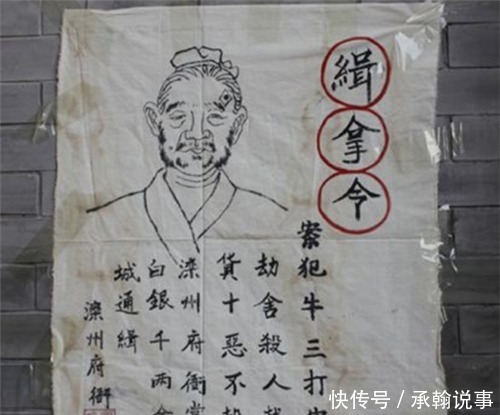 緝拿令
案犯牛三打
劫舍殺人
貨十惡不
滦州府衙
白銀千两
城通緝
滦州府衙
快传号/承翰说事